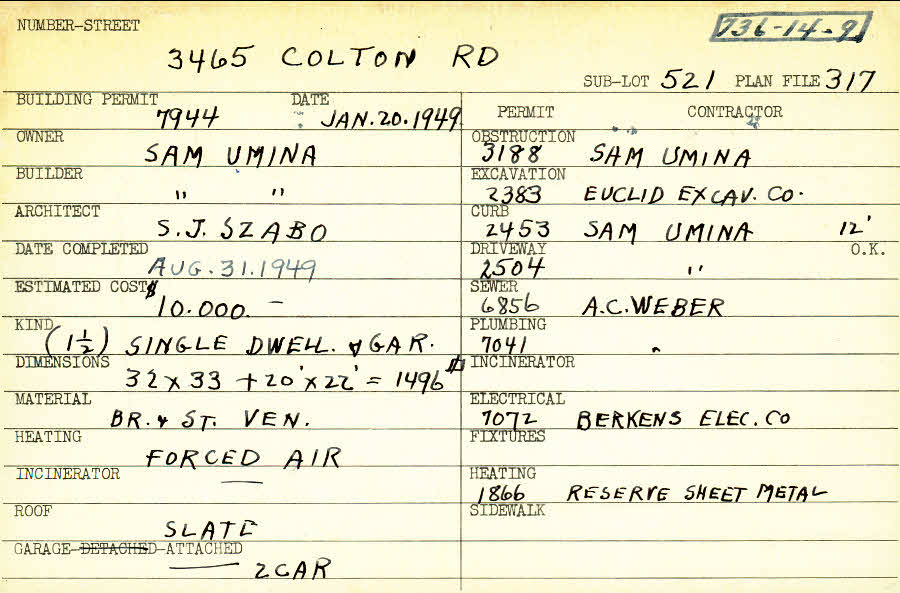 NUMBER-STREET
736-14-9
3465 COLTON RD
SUB-LOT 521 PLAN FILE 317
BUILDING PERMIT DATE
7944 JAN.20.1949
PERMIT CONTRACTOR
OWNER
SAM UMINA
OBSTRUCTION
3188 SAM UMINA
BUILDER
" "
EXCAVATION
2383 EUCLID EXCAV. CO.
ARCHITECT
S.J. SZABO
CURB
2453 SAM UMINA 12'
DATE COMPLETED
AUG.31.1949
DRIVEWAY O.K.
2504 "
ESTIMATED COST $
10.000. –
SEWER
6856 A.C. WEBER
KIND
(1½) SINGLE DWELL. & GAR.
PLUMBING
7041 "
DIMENSIONS
32 x 33 + 20' x 22' = 1496 #
INCINERATOR
MATERIAL
BR. & ST. VEN.
ELECTRICAL
7072 BERKENS ELEC. CO
HEATING
FORCED AIR
FIXTURES
INCINERATOR
—
HEATING
1866 RESERVE SHEET METAL
ROOF
SLATE
SIDEWALK
GARAGE-DETACHED-ATTACHED
2 CAR